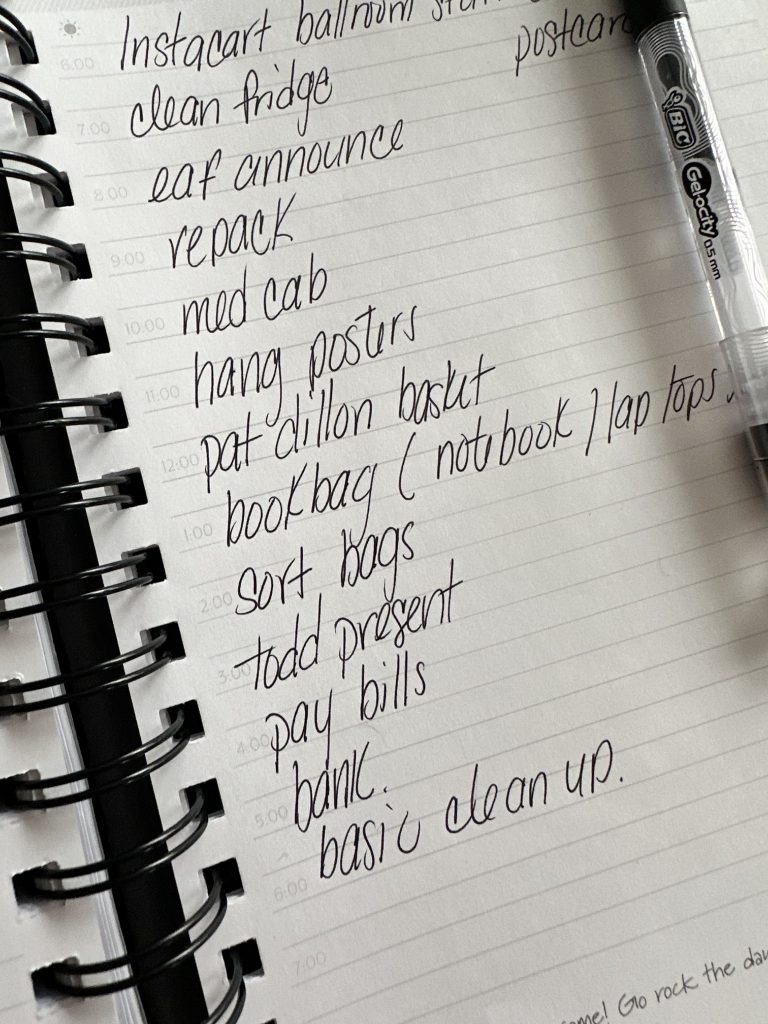 Instacart ballroom
postcard
6:00
clean fridge
7:00
eaf announce
8:00
repack
9:00
med cab
10:00
hang posters
11:00
pat dillon basket
12:00
bookbag ( notebook ) laptops.
1:00
sort bags
2:00
todd present
3:00
pay bills
4:00
bank.
5:00
basic clean up.
6:00
7:00
Go rock the day
BIC
Gelocity 0.5 mm